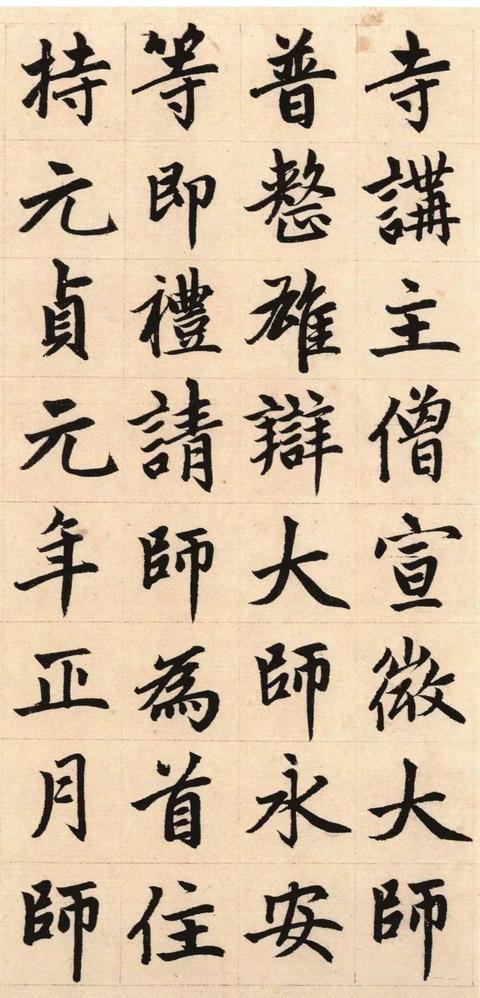 寺講主僧宣微大師
普整雄辯大師永安
等即禮請師為首住
持元貞元年正月師